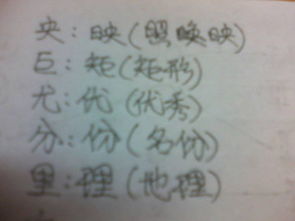 央：映（照映）
巨：矩（矩形）
尤：优（优秀）
分：份（名份）
里：理（地理）